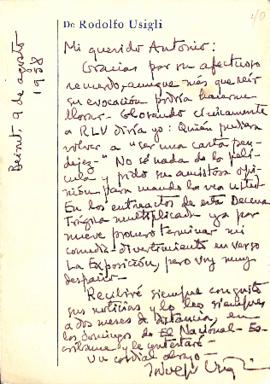 De Rodolfo Usigli
Beirut, 9 de agosto
1958
Mi querido Antonio:
Gracias por su afectuoso
recuerdo, aunque más que reír
su evocación podría hacerme
llorar. Glosando cínicamente
a RLV diría yo: Quién pudiera
volver a "ser una carta pen-
deja". No sé nada de la pelí-
cula y pido su amistosa opi-
nión para cuando la vea usted.
En los entreactos de esta Decena
Trágica multiplicada ya por
nueve procuro terminar mi
comedia-divertimiento en verso
La Exposición, pero voy muy
despacio.
Recibiré siempre con gusto
sus noticias y lo leo siempre,
a dos meses de distancia, en
los domingos de El Nacional. Es-
críbame y le contestaré.
Un cordial abrazo